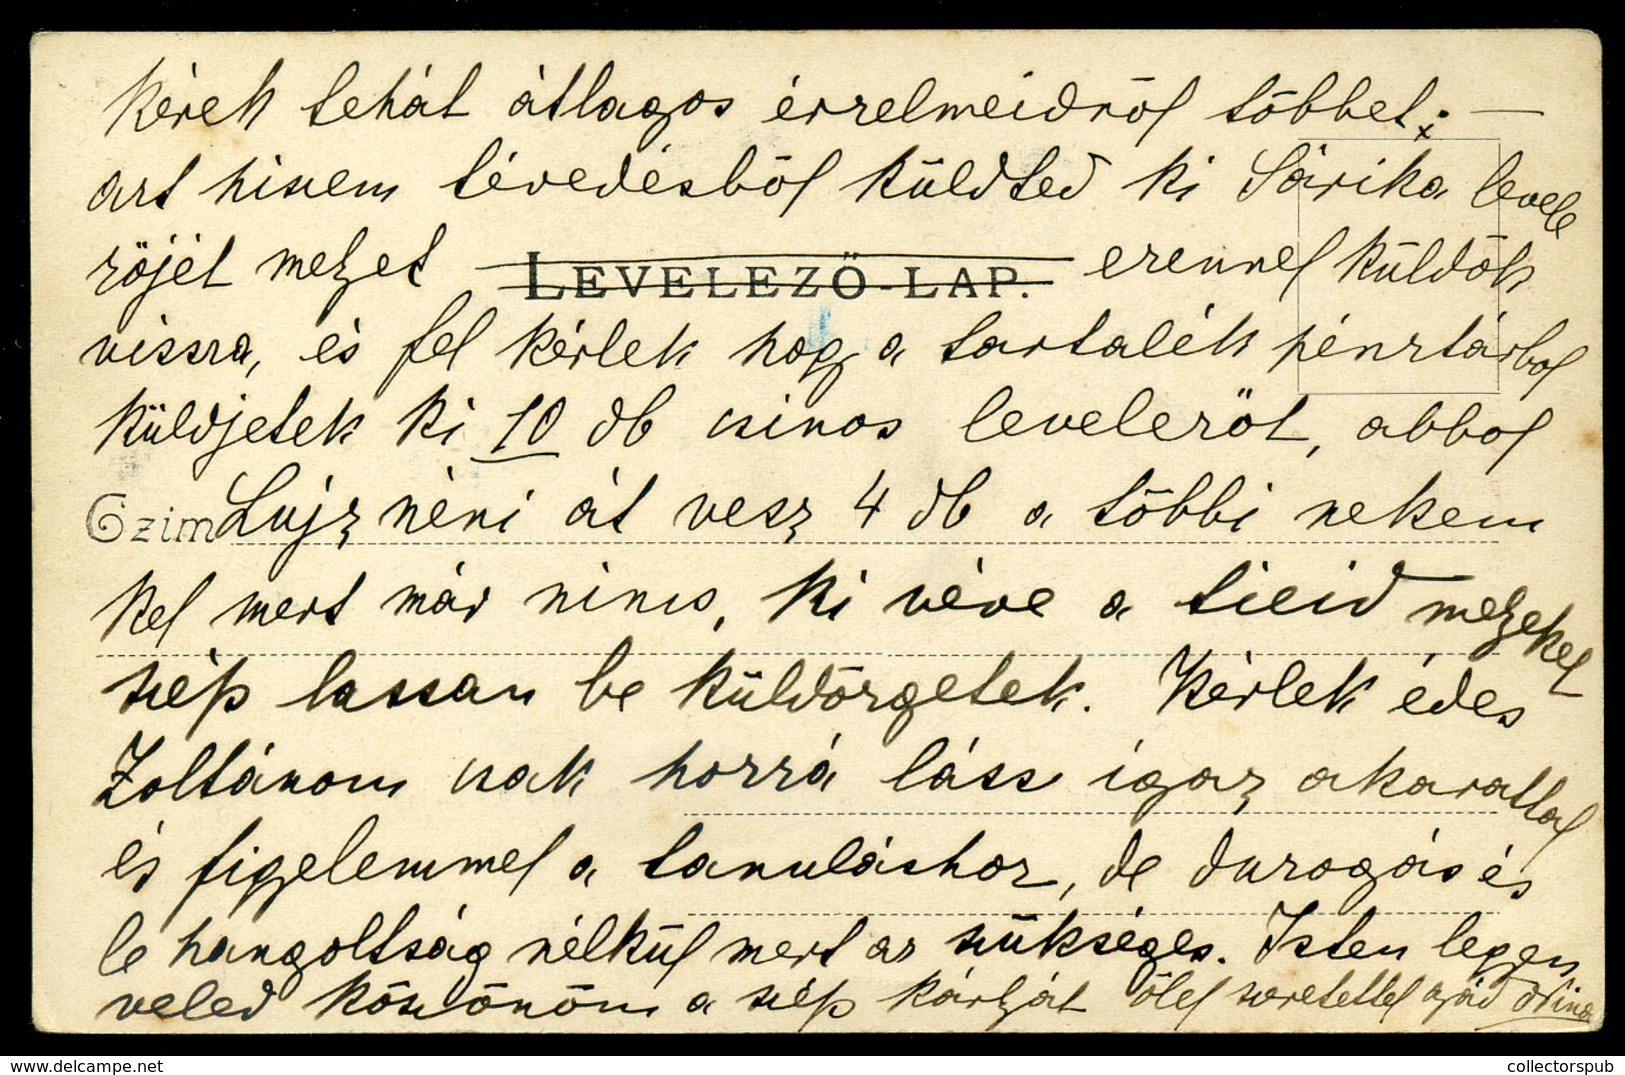 Kérek tehát átlagos érzelmeidről többet; —
azt hiszem tévedésből küldted ki Sárika levele
zőjét melyet LEVELEZŐ-LAP. ezennel küldök
vissza, és fel kérlek hogy a tartalék pénztárbol
küldjetek ki 10 db csinos levelezőt, abbol
Czim Lujz néni át vesz 4 db a többi nekem
kel mert már nincs, ki véve a tieid melyeket
szép lassan be küldözgetek. Kérlek édes
Zoltánom csak hozzá láss igaz akarattal
és figyelemmel a tanuláshoz, de duzogás és
le hangoltság nélkül mert az szükséges. Isten legyen
veled köszönöm a szép kártyát ölel szeretettel apád Nina
collectorspub